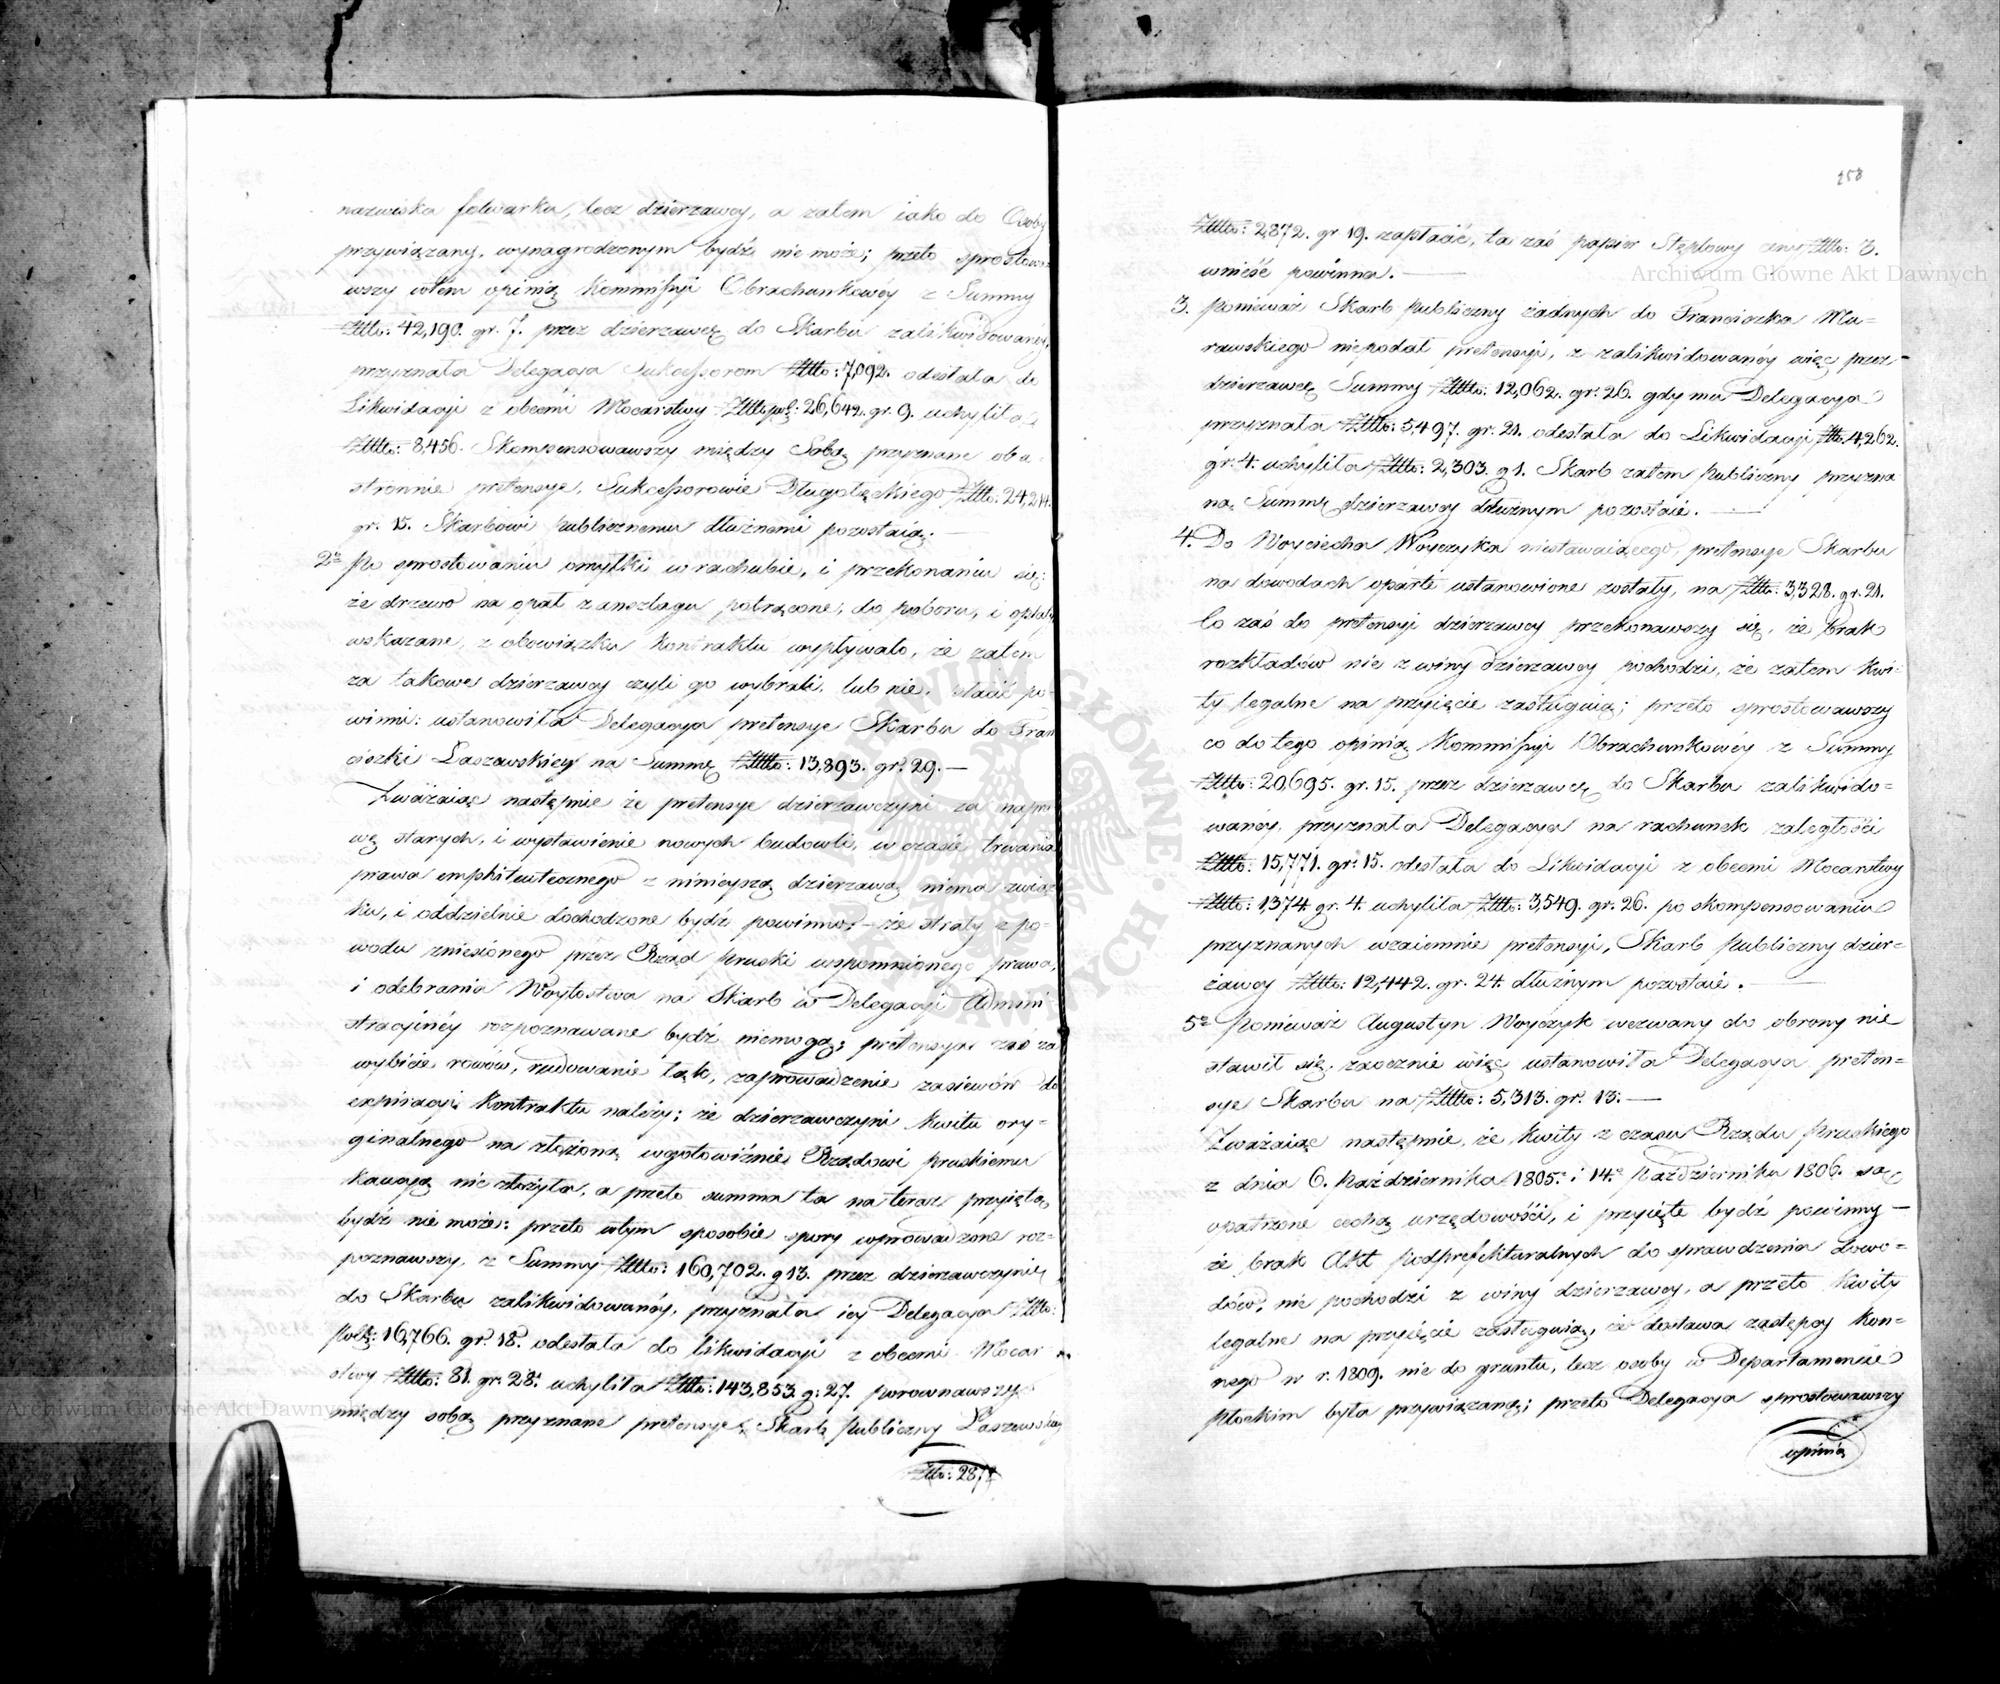 nazwiska folwarku, lecz dzierzawcy, a zatem iako do Osoby
przywiązany, wynagrodzonym bydź nie może; przeto sprostowa
wszy w tem opinią Kommissyi Obrachunkowéy z Summy
Złtto: 42,190. gr. 7. przez dzierzawcę do Skarbu zalikwidowanéy,
przyznała Delegacya Sukcessorom Złtto: 7,092. odesłała do
Likwidacyi z obcemi Mocarstwy Złtto pol: 26,642. gr. 9. uchyliła
Złtto: 8,456. Skompensowawszy między Sobą przyznane obu-
stronnie pretensye, Sukcessorowie Długołęckiego Złtto: 24,214.
gr. 15. Skarbowi publicznemu dłużnemi pozostaią. —
2o Po sprostowaniu omyłki w rachubie, i przekonaniu się;
że drzewo na opał z anszlagu potrącone, do poboru, i opłaty
wskazane, z obowiązku kontraktu wypływało, że zatem
za takowe dzierzawcy czyli go wybrali, lub nie, płacić po-
winni: ustanowiła Delegacya pretensye Skarbu do Fran
ciszki Laszewskiey na Summę Złtto: 13,893. gr. 29. —
Zważaiąc następnie że pretensye dzierzawczyni za napra
wę starych, i wystawienie nowych budowli, w czasie trwania
prawa emphiteutecznego z ninieyszą dzierzawą niema związ
ku, i oddzielnie dochodzone bydź powinno; — że straty z po-
wodu zniesionego przez Rząd pruski wspomnionego prawa,
i odebrania Woytostwa na Skarb w Delegacyi Admini
stracyinéy rozpoznawane bydź niemogą; pretensya zaś za
wybicie rowów, rudowanie łąk, zaprowadzenie zasiewów do
expiracyi kontraktu należy; że dzierzawczyni kwitu ory-
ginalnego na złożoną w gotowiźnie Rządowi pruskiemu
kaucyą nie złożyła, a przeto summa ta na teraz przyięta
bydź nie może: przeto w tym sposobie spory wprowadzone roz-
poznawszy, z Summy Złtto: 160,702. g 13. przez dzierzawczynię
do Skarbu zalikwidowanéy, przyznała iey Delegacya Złtto:
Polz: 16,766. gr. 18. odesłała do likwidacyi z obcemi Mocar
stwy Złtto: 81. gr. 28. uchyliła Złtto: 143,853. g: 27. porownawszy
między sobą przyznane pretensye, Skarb publiczny Laszewskiey
Złtto: 2872
258
Złtto: 2,872. gr 19. zapłacić, ta zaś papier Stęplowy ceny Złtto: 3.
wnieść powinna. —
3. Ponieważ Skarb publiczny żadnych do Franciszka Mu-
rawskiego niepodał pretensyi, z zalikwidowanéy więc przez
dzierzawcę Summy Złtto: 12,062. gr: 26. gdy mu Delegacya
przyznała Złtto: 5,497. gr: 21. odesłała do Likwidacyi Złtto. 4,262.
gr: 4. uchyliła Złtto: 2,303. g 1. Skarb zatem publiczny przyzna
ną Summę dzierzawcy dłużnym pozostaie. —
4. Do Woyciecha Woyczyka niestawaiącego, pretensye Skarbu
na dowodach oparte ustanowione zostały, na Złtto: 3,328. gr. 21.
Co zaś do pretensyi dzierzawcy przekonawszy się, że brak
rozkładów nie z winy dzierzawcy pochodzi, że zatem kwi-
ty legalne na przyięcie zasługuią; przeto sprostowawszy
co do tego opinią Kommissyi Obrachunkowéy z Summy
Złtto: 20,695. gr. 15. przez dzierzawcę do Skarbu zalikwido-
wanéy, przyznała Delegacya na rachunek zaległości
Złtto: 15,771. gr: 15. odesłała do Likwidacyi z obcemi Mocarstwy
Złtto: 1,374. gr. 4. uchyliła Złtto: 3,549. gr: 26. po skompensowaniu
przyznanych wzaiemnie pretensyi, Skarb publiczny dzier-
żawcy Złtto: 12,442. gr. 24. dłużnym pozostaie. —
5o Ponieważ Augustyn Woyczyk wezwany do obrony nie
stawił się, zaocznie więc ustanowiła Delegacya preten-
sye Skarbu na Złtto: 5,313. gr. 13. —
Zważaiąc następnie, że kwity z czasu Rządu pruskiego
z dnia 6. Października 1805. i 14. Października 1806. są
opatrzone cechą urzędowości, i przyięte bydź powinny —
że brak Akt podprefekturalnych do sprawdzenia dowo-
dów, nie pochodzi z winy dzierzawcy, a przeto kwity
legalne na przyięcie zasługuią, że dostawa zastępcy kon-
nego w r. 1809. nie do gruntu, lecz osoby w Departamencie
Płockim była przywiązaną; przeto Delegacya sprostowawszy
opinią
Archiwum Główne Akt Dawnych
Archiwum Główne Akt Dawnych